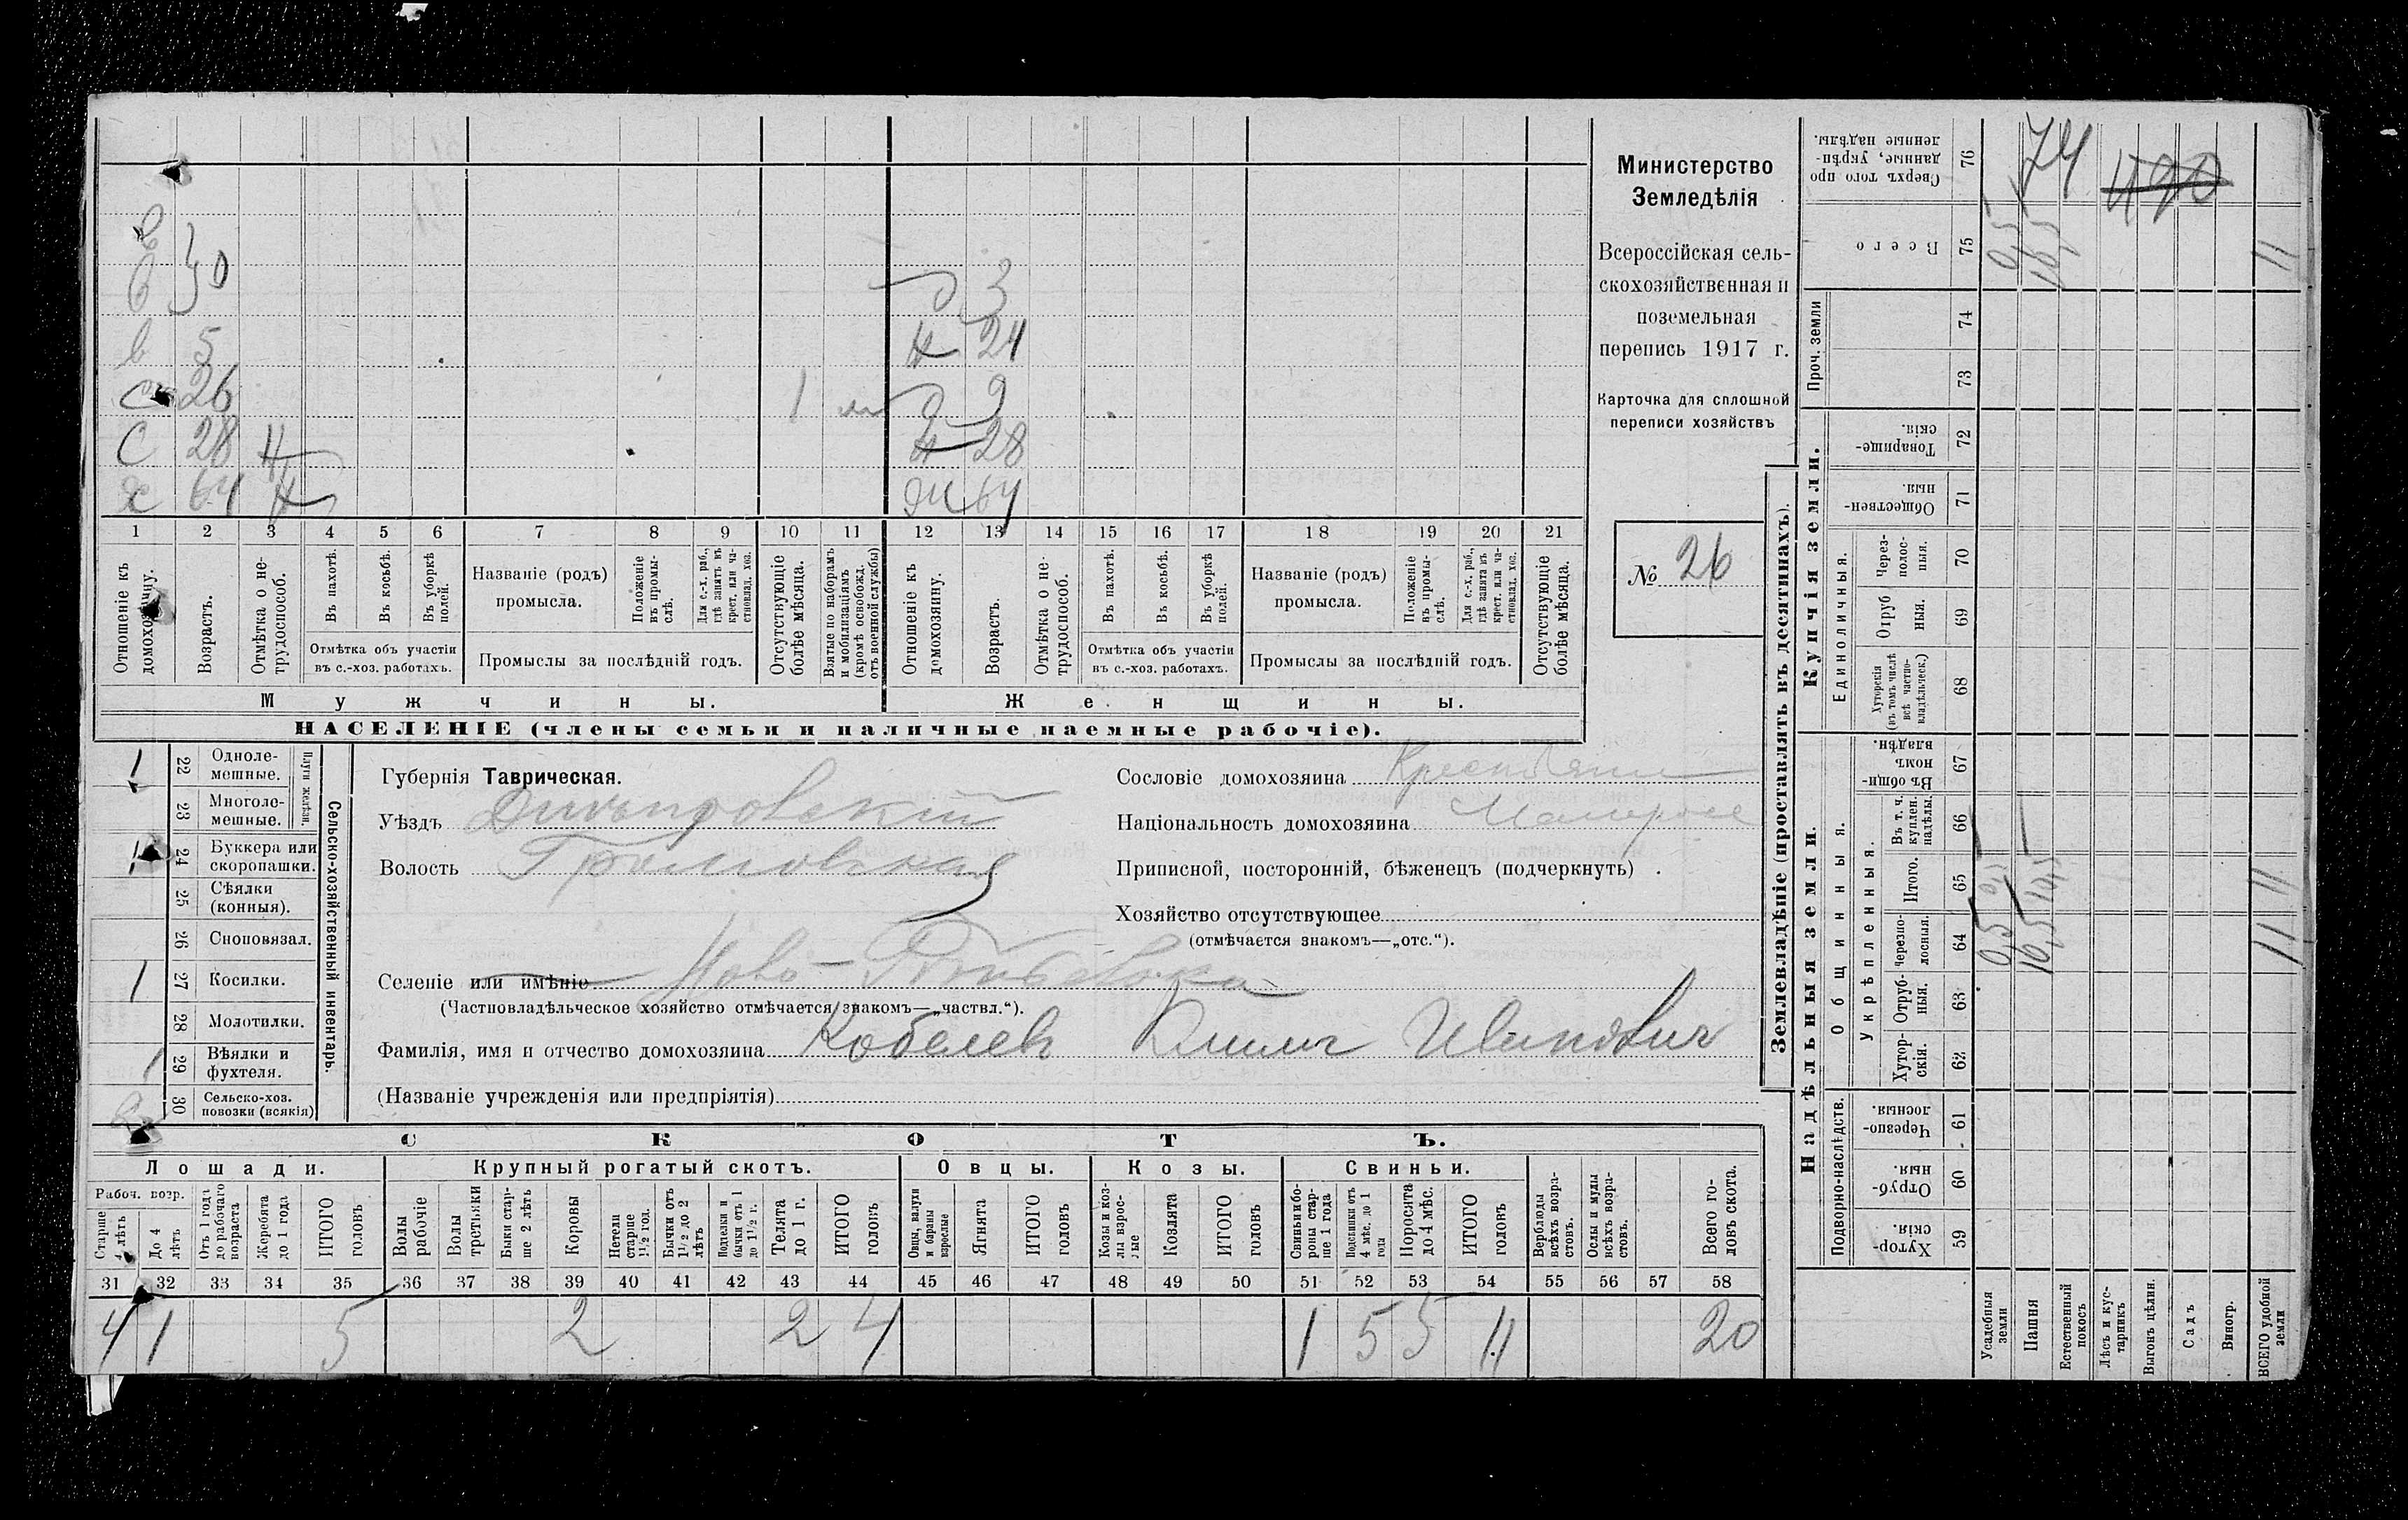 Министерство
Земледѣлія
Всероссійская сель-
скохозяйственная и
поземельная
перепись 1917 г.
Карточка для сплошной
переписи хозяйствъ
№ 26
3
5 н 24
с 26 1 9
с 28 н н 28
х 64 н 64
1 2 3 4 5 6 7 8 9 10 11 12 13 14 15 16 17 18 19 20 21
Отношеніе къ домохозяину.
Возрастъ.
Отмѣтка о не-трудоспособ.
Въ пахотѣ.
Въ косьбѣ.
Въ уборкѣ полей.
Отмѣтка объ участіи
въ с.-хоз. работахъ.
Названіе (родъ)
промысла.
Положеніе въ промы-слѣ.
Для с.-х. раб., гдѣ занятъ въ крест. или ча-стновлад. хоз.
Промыслы за послѣдній годъ.
Отсутствующіе болѣе мѣсяца.
Взятые по наборамъ и мобилизаціямъ (кромѣ освобожд. отъ военной службы)
Отношеніе къ домохозяину.
Возрастъ.
Отмѣтка о не-трудоспособ.
Въ пахотѣ.
Въ косьбѣ.
Въ уборкѣ полей.
Отмѣтка объ участіи
въ с.-хоз. работахъ.
Названіе (родъ)
промысла.
Положеніе въ промы-слѣ.
Для с.-х. раб., гдѣ занята въ крест. или ча-стновлад. хоз.
Промыслы за послѣдній годъ.
Отсутствующіе болѣе мѣсяца.
Мужчины. Женщины.
НАСЕЛЕНІЕ (члены семьи и наличные наемные рабочіе).
Сельско-хозяйственный инвентарь.
Плуги желѣзн.
1 22 Одноле-мешные.
23 Многоле-мешные.
1 24 Буккера или скоропашки.
25 Сѣялки (конныя).
26 Сноповязал.
1 27 Косилки.
28 Молотилки.
1 29 Вѣялки и фухтеля.
30 Сельско-хоз. повозки (всякія)
Губернія Таврическая.
Уѣздъ Днѣпровскій
Волость Громовская
Селеніе или имѣніе Ново-
(Частновладѣльческое хозяйство отмѣчается знакомъ—„частвл.“).
Фамилія, имя и отчество домохозяина Кобелевъ Климъ Ивановичъ
(Названіе учрежденія или предпріятія)
Сословіе домохозяина Крестьянинъ
Національность домохозяина Малоросс
Приписной, посторонній, бѣженецъ (подчеркнуть) .
Хозяйство отсутствующее
(отмѣчается знакомъ—„отс.“).
СКОТЪ.
Лошади. Крупный рогатый скотъ. Овцы. Козы. Свиньи.
Рабоч. возр.
Старше 4 лѣтъ
До 4 лѣтъ
Отъ 1 года до рабочаго возраста
Жеребята до 1 года
ИТОГО головъ
Волы рабочіе
Волы третьяки
Быки стар-ше 2 лѣтъ
Коровы
Нетели старше 1½ год.
Бычки отъ 1½ до 2 лѣтъ
Подтелки и бычки отъ 1 до 1½ г.
Телята до 1 г.
ИТОГО головъ
Овцы, валухи и бараны взрослые
Ягнята
ИТОГО головъ
Козы и коз-лы взрос-лые
Козлята
ИТОГО головъ
Свиньи и бо-ровы стар-ше 1 года
Подсвинки отъ 4 мѣс. до 1 года
Поросята до 4 мѣс.
ИТОГО головъ
Верблюды всѣхъ возра-стовъ.
Ослы и мулы всѣхъ возра-стовъ.
Всего го-ловъ скота.
31 32 33 34 35 36 37 38 39 40 41 42 43 44 45 46 47 48 49 50 51 52 53 54 55 56 57 58
4 1 5 2 2 4 1 5 5 11 20
Землевладѣніе (проставлять въ десятинахъ).
Купчія земли.
Надѣльныя земли.
Сверхъ того про-данные, укрѣп-ленные надѣлы. 76 74 490
Всего 75 0,5 10,5 11
Проч. земли 74 73
Товарище-скія. 72
Обществен-ныя. 71
Единоличныя.
Через-полос-ныя. 70
Отруб-ныя. 69
Хуторскія (въ томъ числѣ всѣ частно-владѣльческ.) 68
Общинныя.
Въ общин-номъ владѣн. 67
Укрѣпленныя.
Въ т. ч. куплен. надѣлы. 66
Итого. 65 0,5 10,5 11
Черезпо-лосныя. 64 0,5 10,5 11
Отруб-ныя. 63
Хутор-скія. 62
Подворно-наслѣдств.
Черезпо-лосныя. 61
Отруб-ныя. 60
Хутор-скія. 59
Усадебныя земли
Пашня
Естественный покосъ
Лѣсъ и кус-тарникъ
Выгонъ цѣлин.
Садъ
Виногр.
ВСЕГО удобной земли